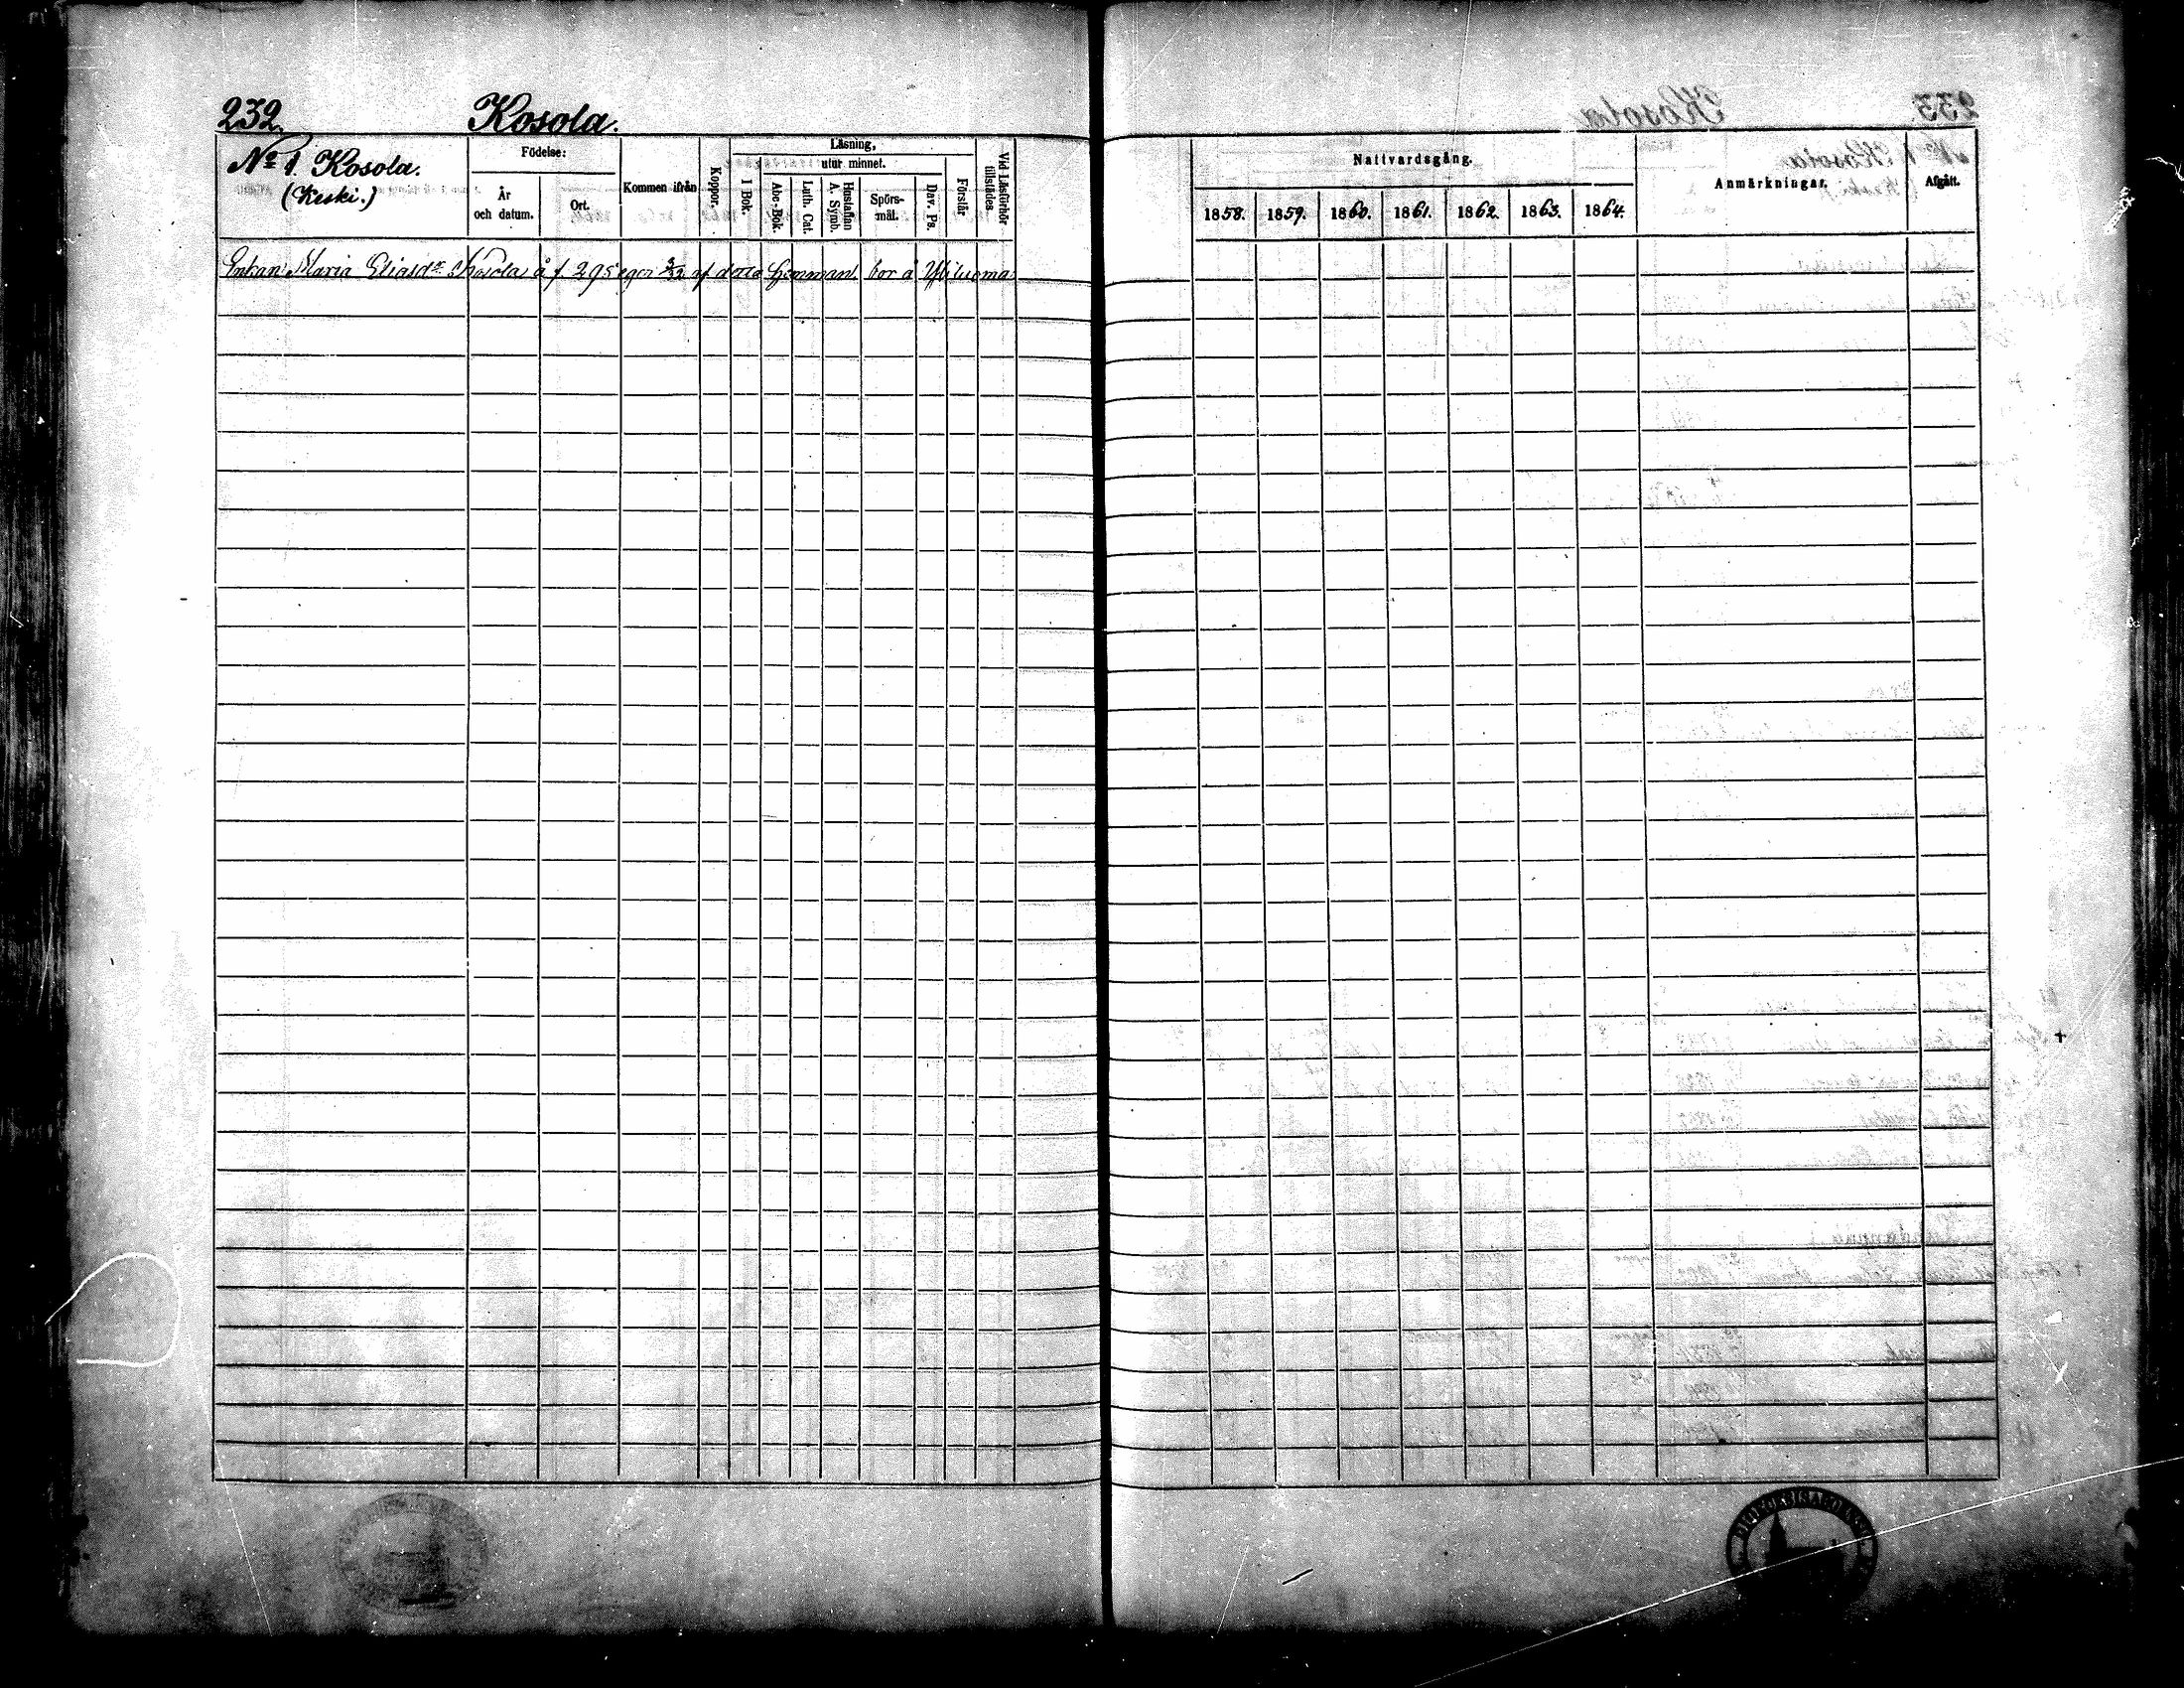 232.
Kosola.
No 1. Kosola.
(Keski.)
Födelse:
År
och datum.
Ort.
Kommen ifrån
Koppor.
Läsning,
utur minnet.
I Bok.
Abc-Bok.
Luth. Cat.
Hustaflan
A. Symb.
Spörs-
mål.
Dav. Ps.
Förstår
Vid Läsförhör
tillstädes
Enkan Maria Eliasdr Kosola å f. 295 eger 3/32 af detta hemman bor å
Nattvardsgång.
1858. 1859. 1860. 1861. 1862. 1863. 1864.
Anmärkningar.
Afgått.